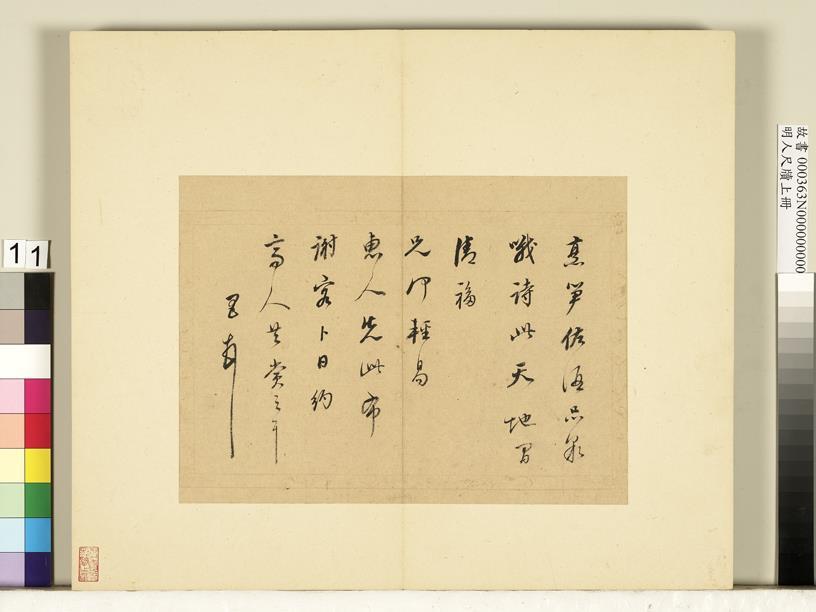 烹笋佐酒品泉
哦詩此天地間
清福
兄何輕易
惠人先此布
謝容卜日約
高人共賞之耳
弟
故書 000363N000000000
明人尺牘上冊
1 1